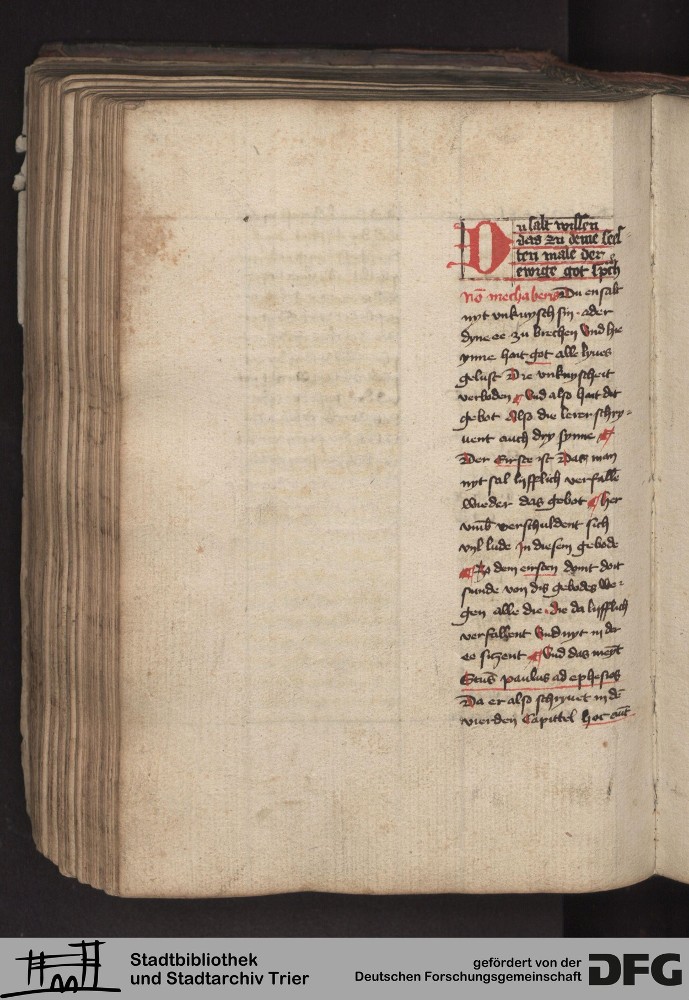 Du salt wissen
das zu deme sees
ten male der
ewige got sprich
Nō mechaberis Du en salt
nyt vnkuysch sin · ader
dyne ee zu brechen Vnd hie
ynne hait got alle lyues
gelust Die vnkuyscheit
verboden ¶ Vnd also hait dit
gebot Also die lerer schry⸗
uent auch dry synne ¶
Der Eirste ist Das man
nyt sal lyfflich verfallē
wieder das gebot ¶ her
vmb verschuldent sich
vyl lude in diesem gebode
¶ Zo dem eirsten dymt doit
sunde von dis gebodes we⸗
gen alle die · die da lyfflich
verfallent Vnd nyt in der
ee sitzent ¶ Vnd das meynt
Sctus paulus ad ephesios
Da er also schryuet in dē
vierden Capittel hoc aut
Stadtbibliothek
und Stadtarchiv Trier
gefördert von der
Deutschen Forschungsgemeinschaft
DFG